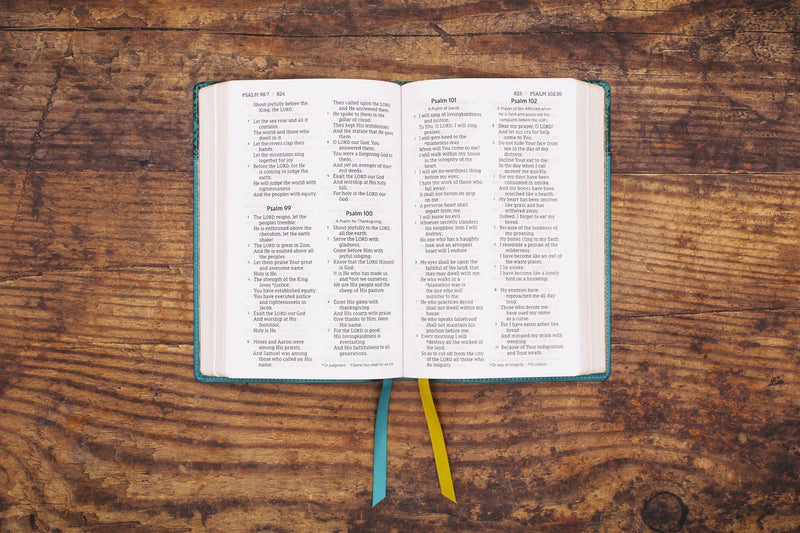 PSALM 98:7 | 824
Shout joyfully before the
King, the LORD.
7 Let the sea roar and all it
contains,
The world and those who
dwell in it.
8 Let the rivers clap their
hands,
Let the mountains sing
together for joy
9 Before the LORD, for He
is coming to judge the
earth;
He will judge the world with
righteousness
And the peoples with equity.
Psalm 99
1 The LORD reigns, let the
peoples tremble;
He is enthroned above the
cherubim, let the earth
shake!
2 The LORD is great in Zion,
And He is exalted above all
the peoples.
3 Let them praise Your great
and awesome name;
Holy is He.
4 The strength of the King
loves *justice;
You have established equity;
You have executed justice
and righteousness in
Jacob.
5 Exalt the LORD our God
And worship at His
footstool;
Holy is He.
6 Moses and Aaron were
among His priests,
And Samuel was among
those who called on His
name;
They called upon the LORD
and He answered them.
7 He spoke to them in the
pillar of cloud;
They kept His testimonies
And the statute that He gave
them.
8 O LORD our God, You
answered them;
You were a forgiving God to
them,
And yet an avenger of their
evil deeds.
9 Exalt the LORD our God
And worship at His holy
hill,
For holy is the LORD our
God.
Psalm 100
A Psalm for Thanksgiving.
1 Shout joyfully to the LORD,
all the earth.
2 Serve the LORD with
gladness;
Come before Him with
joyful singing.
3 Know that the LORD Himself
is God;
It is He who has made us,
and *not we ourselves;
We are His people and the
sheep of His pasture.
4 Enter His gates with
thanksgiving
And His courts with praise.
Give thanks to Him, bless
His name.
5 For the LORD is good;
His lovingkindness is
everlasting
And His faithfulness to all
generations.
*Or judgment
825 | PSALM 102:10
Psalm 101
A Psalm of David.
1 I will sing of lovingkindness
and justice,
To You, O LORD, I will sing
praises.
2 I will give heed to the
*blameless way.
When will You come to me?
I will walk within my house
in the integrity of my
heart.
3 I will set no worthless thing
before my eyes;
I hate the work of those who
fall away;
It shall not fasten its grip
on me.
4 A perverse heart shall
depart from me;
I will know no evil.
5 Whoever secretly slanders
his neighbor, him I will
destroy;
No one who has a haughty
look and an arrogant
heart will I endure.
6 My eyes shall be upon the
faithful of the land, that
they may dwell with me;
He who walks in a
*blameless way is
the one who will
minister to me.
7 He who practices deceit
shall not dwell within my
house;
He who speaks falsehood
shall not maintain his
position before me.
8 Every morning I will
*destroy all the wicked of
the land,
So as to cut off from the city
of the LORD all those who
do iniquity.
Psalm 102
A Prayer of the Afflicted when
he is faint and pours out his
complaint before the LORD.
1 Hear my prayer, O LORD!
And let my cry for help
come to You.
2 Do not hide Your face from
me in the day of my
distress;
Incline Your ear to me;
In the day when I call
answer me quickly.
3 For my days have been
consumed in smoke,
And my bones have been
scorched like a hearth.
4 My heart has been smitten
like grass and has
withered away,
Indeed, I forget to eat my
bread.
5 Because of the loudness of
my groaning
My bones cling to my flesh.
6 I resemble a pelican of the
wilderness;
I have become like an owl of
the waste places.
7 I lie awake,
I have become like a lonely
bird on a housetop.
8 My enemies have
reproached me all day
long;
Those who deride me
have used my name
as a curse.
9 For I have eaten ashes like
bread
And mingled my drink with
weeping
10 Because of Your indignation
and Your wrath,
*Or way of integrity